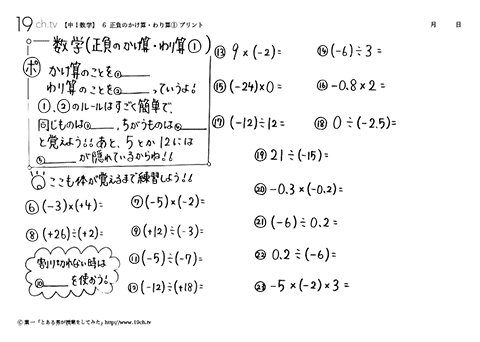 19ch.tv 【中1数学】 6 正負のかけ算・わり算① プリント 月 日
数学(正負のかけ算・わり算①)
ポ かけ算のことを①____
わり算のことを②____っていうよ!
①、②のルールはすごく簡単で、
同じものは③____、ちがうものは④____
と覚えよう!!あと、5とか12には
⑤____が隠れているからね!!
ここも体が覚えるまで練習しよう!!
⑥ (-3)×(+4)= ⑦ (-5)×(-2)=
⑧ (+26)÷(+2)= ⑨ (+12)÷(-3)=
割り切れない時は
⑩____を使おう!!
⑪ (-5)÷(-7)=
⑫ (-12)÷(+18)=
⑬ 9×(-2)= ⑭ (-6)÷3=
⑮ (-24)×0= ⑯ -0.8×2=
⑰ (-12)÷12= ⑱ 0÷(-2.5)=
⑲ 21÷(-15)=
⑳ -0.3×(-0.2)=
㉑ (-6)÷0.2=
㉒ 0.2÷(-6)=
㉓ -5×(-2)×3=
© 葉一「とある男が授業をしてみた」http://www.19ch.tv